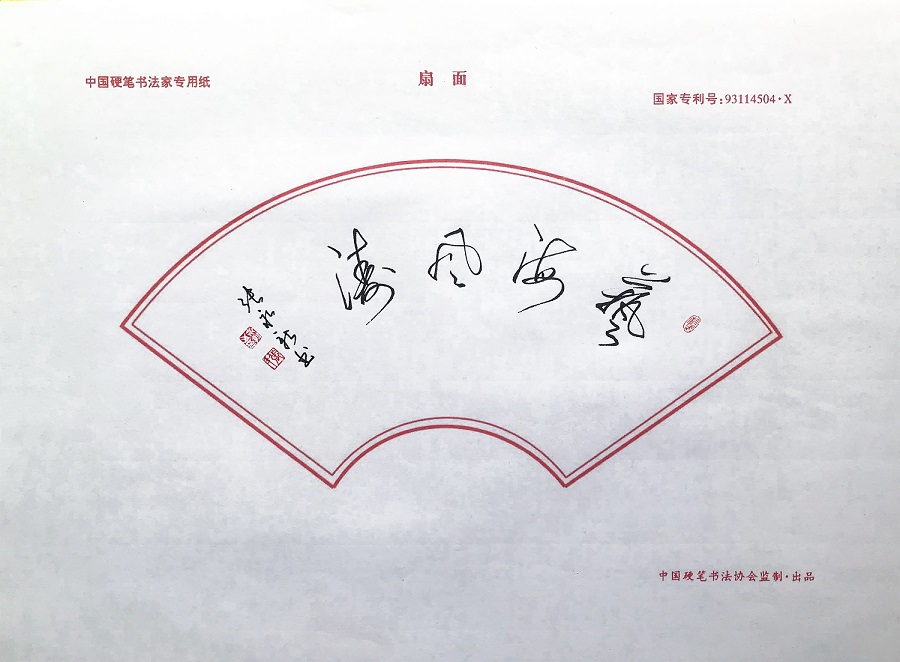 中国硬笔书法家专用纸
扇面
国家专利号:93114504·X
藝海风涛
张永
书
中国硬笔书法协会监制·出品